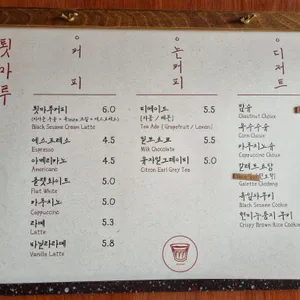 툇마루
커피
툇마루커피 6.0
Black Sesame Cream Latte
에스프레소 4.5
Espresso
아메리카노 4.5
Americano
플랫화이트 5.0
Flat White
카푸치노 5.0
Cappuccino
라떼 5.3
Latte
바닐라라떼 5.8
Vanilla Latte
논커피
티에이드 5.5
(자몽 / 레몬)
Tea Ade ( Grapefruit / Lemon)
밀크초코 5.5
Milk Chocolate
5.5
Citron Earl Grey Tea
디저트
밤슈
Chestnut Choux
옥수수슈
Corn Choux
카푸치노슈
Cappuccino Choux
Galette Chodang
흑임자쿠키
Black Sesame Cookie
현미누룽지 쿠키
Crispy Brown Rice Cookie